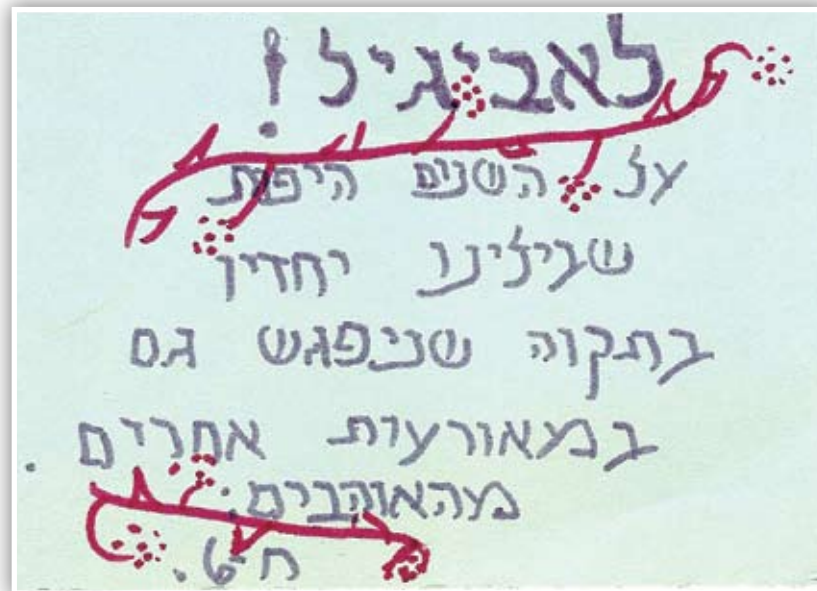 לאביגיל!
על השנים היפות
שבילינו יחדיו
בתקוה שניפגש גם
במאורעות אחרים.
מהאוהבים:
ח-6.